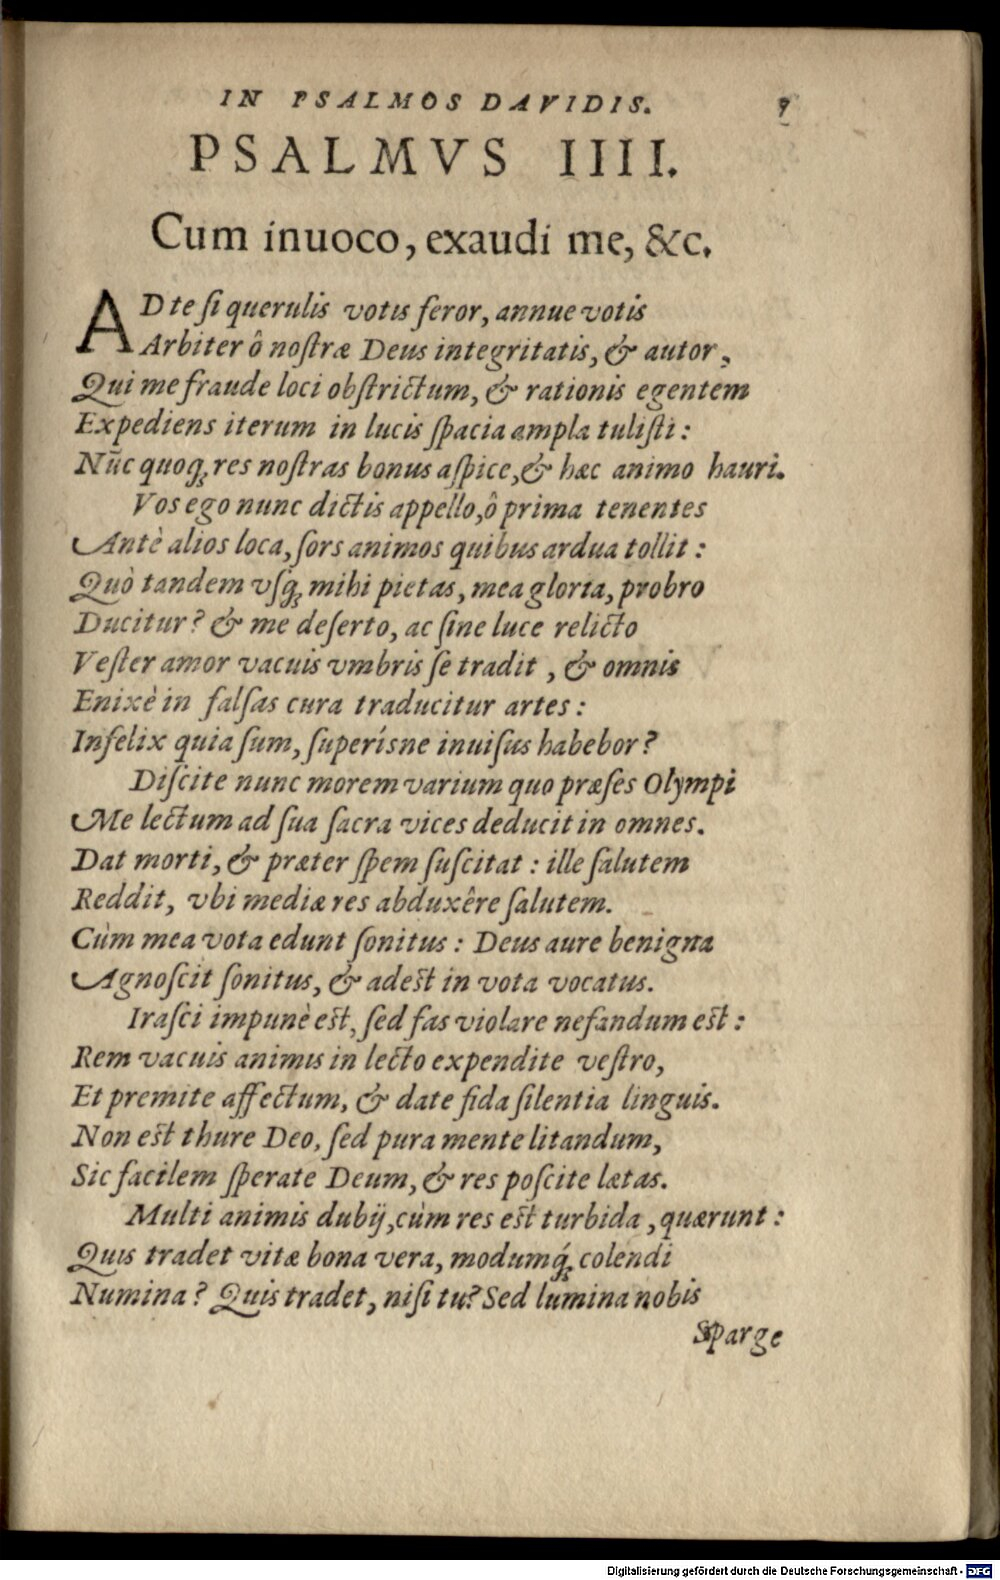 IN PSALMOS DAVIDIS. 9
PSALMVS IIII.
Cum inuoco, exaudi me, &c.
AD te ſi querulis votis feror, annue votis
Arbiter ô noſtræ Deus integritatis, & autor,
Qui me fraude loci obſtrictum, & rationis egentem
Expediens iterum in lucis ſpacia ampla tuliſti:
Nūc quoq; res noſtras bonus aſpice, & hæc animo hauri.
Vos ego nunc dictis appello, ô prima tenentes
Antè alios loca, ſors animos quibus ardua tollit:
Quò tandem vſq; mihi pietas, mea gloria, probro
Ducitur? & me deſerto, ac ſine luce relicto
Veſter amor vacuis vmbris ſe tradit, & omnis
Enixè in falſas cura traducitur artes:
Infelix quia ſum, ſuperísne inuiſus habebor?
Diſcite nunc morem varium quo præſes Olympi
Me lectum ad ſua ſacra vices deducit in omnes.
Dat morti, & præter ſpem ſuſcitat: ille ſalutem
Reddit, vbi mediæ res abduxêre ſalutem.
Cùm mea vota edunt ſonitus: Deus aure benigna
Agnoſcit ſonitus, & adeſt in vota vocatus.
Iraſci impunè eſt, ſed fas violare nefandum eſt:
Rem vacuis animis in lecto expendite veſtro,
Et premite affectum, & date fida ſilentia linguis.
Non eſt thure Deo, ſed pura mente litandum,
Sic facilem ſperate Deum, & res poſcite lætas.
Multi animis dubij, cùm res eſt turbida, quærunt:
Quis tradet vitæ bona vera, modumq́; colendi
Numina? Quis tradet, niſi tu? Sed lumina nobis
Sparge
Digitalisierung gefördert durch die Deutsche Forschungsgemeinschaft - DFG